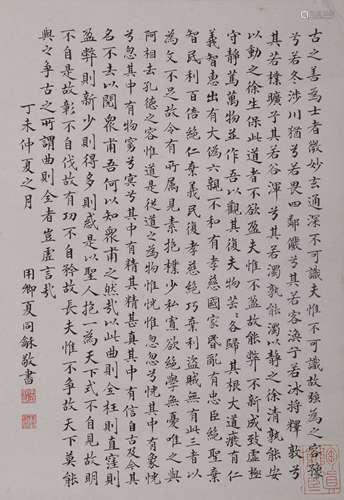 古之善為士者微妙玄通深不可識夫惟不可識故強為之容豫
兮若冬涉川猶兮若畏四鄰儼兮其若容渙兮若冰將釋敦兮
其若樸曠兮其若谷渾兮其若濁孰能濁以靜之徐清孰能安
以動之徐生保此道者不欲盈夫惟不盈故能弊不新成致虛極
守靜篤萬物並作吾以觀其復夫物芸芸各歸其根大道廢有仁
義智惠出有大偽六親不和有孝慈國家昏亂有忠臣絕聖棄
智民利百倍絕仁棄義民復孝慈絕巧棄利盜賊無有此三者以
為文不足故令有所屬見素抱樸少私寡欲絕學無憂唯之與
阿相去孔德之容惟道是從道之為物惟恍惟忽忽兮恍其中有象恍
兮忽其中有物窈兮冥兮其中有精其精甚真其中有信自古及今其
名不去以閱眾甫吾何以知眾甫之然哉以此曲則全枉則直窪則
盈弊則新少則得多則惑是以聖人抱一為天下式不自見故明
不自是故彰不自伐故有功不自矜故長夫惟不爭故天下莫能
與之爭古之所謂曲則全者豈虛言哉
丁未仲夏之月
用卿夏同龢敬書